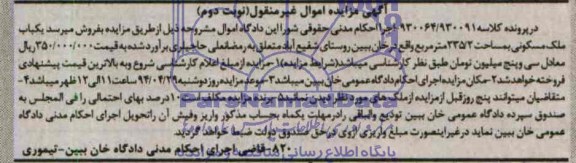 آگهی مزایده اموال غیرمنقول(نوبت دوم)
درپرونده کلاسه۹۳۰۰۶۴/۹۳۰۰۹۱اجرا احکام مدنی حقوقی شورا این دادگاه اموال مشروحه ذیل ازطریق مزایده بفروش میرسد یکباب
ملک مسکونی بمساحت ۲۳۵۲مترمربع واقع درخان ببین روستای شفیع آباد متعلق به رمضانعلی حاجیلری برآورد شده به قیمت۳۵۰/۰۰۰/۰۰۰ریال
معادل سی وپنج میلیون تومان طبق نظر کارشناسی میباشد(شرایط مزایده)۱-مزایده از مبلغ اعلام کارشناسی شروع وبه بالاترین قیمت پیشنهادی
فروخته خواهدشد۲-مکان مزایده اجرای احکام دادگاه عمومی خان ببین میباشد۳-موعد مزایده روزدوشنبه۹۴/۰۴/۲۹ ساعت۱۱الی۱۲ظهر میباشد۴-
متقاضیان میتوانند پنج روزقبل ازمزایده ازملک های مورد نظر دیدن نمایند برنده مزایده مکلف است ۱۰درصد بهای احتمالی را فی المجلس به
صندوق سپرده دادگاه عمومی خان ببین تودیع والباقی رادرمهلت یکماه بحساب مذکور واریز وفیش آن راتحویل اجرای احکام مدنی دادگاه
عمومی خان ببین نماید درغیراینصورت مبلغ واریزی ازوی درحق صندوق دولت ضبط خواهد گردید.
۸۲۰-قاضی اجرای احکام مدنی دادگاه خان ببین-تیموری
پایگاه اطلاع رسانی